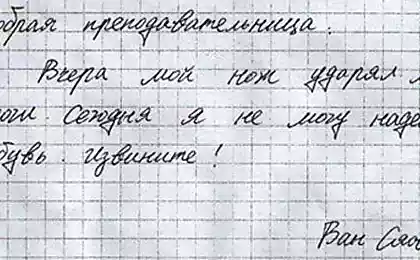 обрая преподавательница.
Вчера мой нож ударял м
оги. Сегодня я не могу наде
бувь. Извините!
Ван Сяо